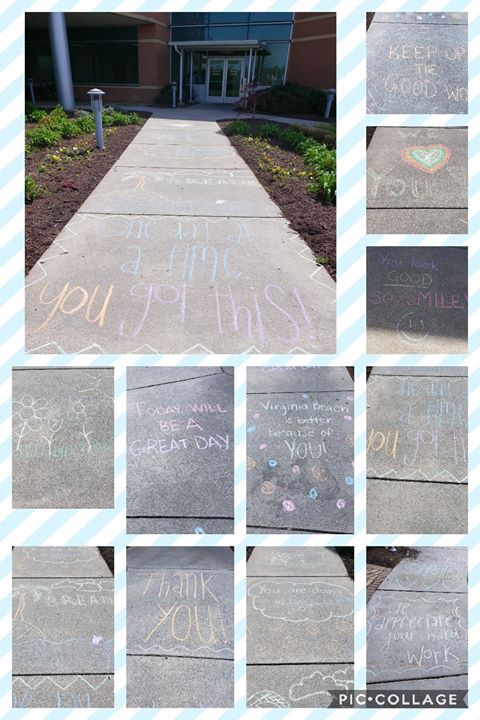 BREATHE
One day at
a time.
you got this!
KEEP UP
THE
GOOD WO
YOU
You look
GOOD
SO SMILE!
TODAY WILL
BE A
GREAT DAY
Virginia Beach
is better
because of
YOU!
a time
you got th
BREATHE
Thank
YOU!
You are doing
We
appreciate
your hard
WORK
PIC•COLLAGE